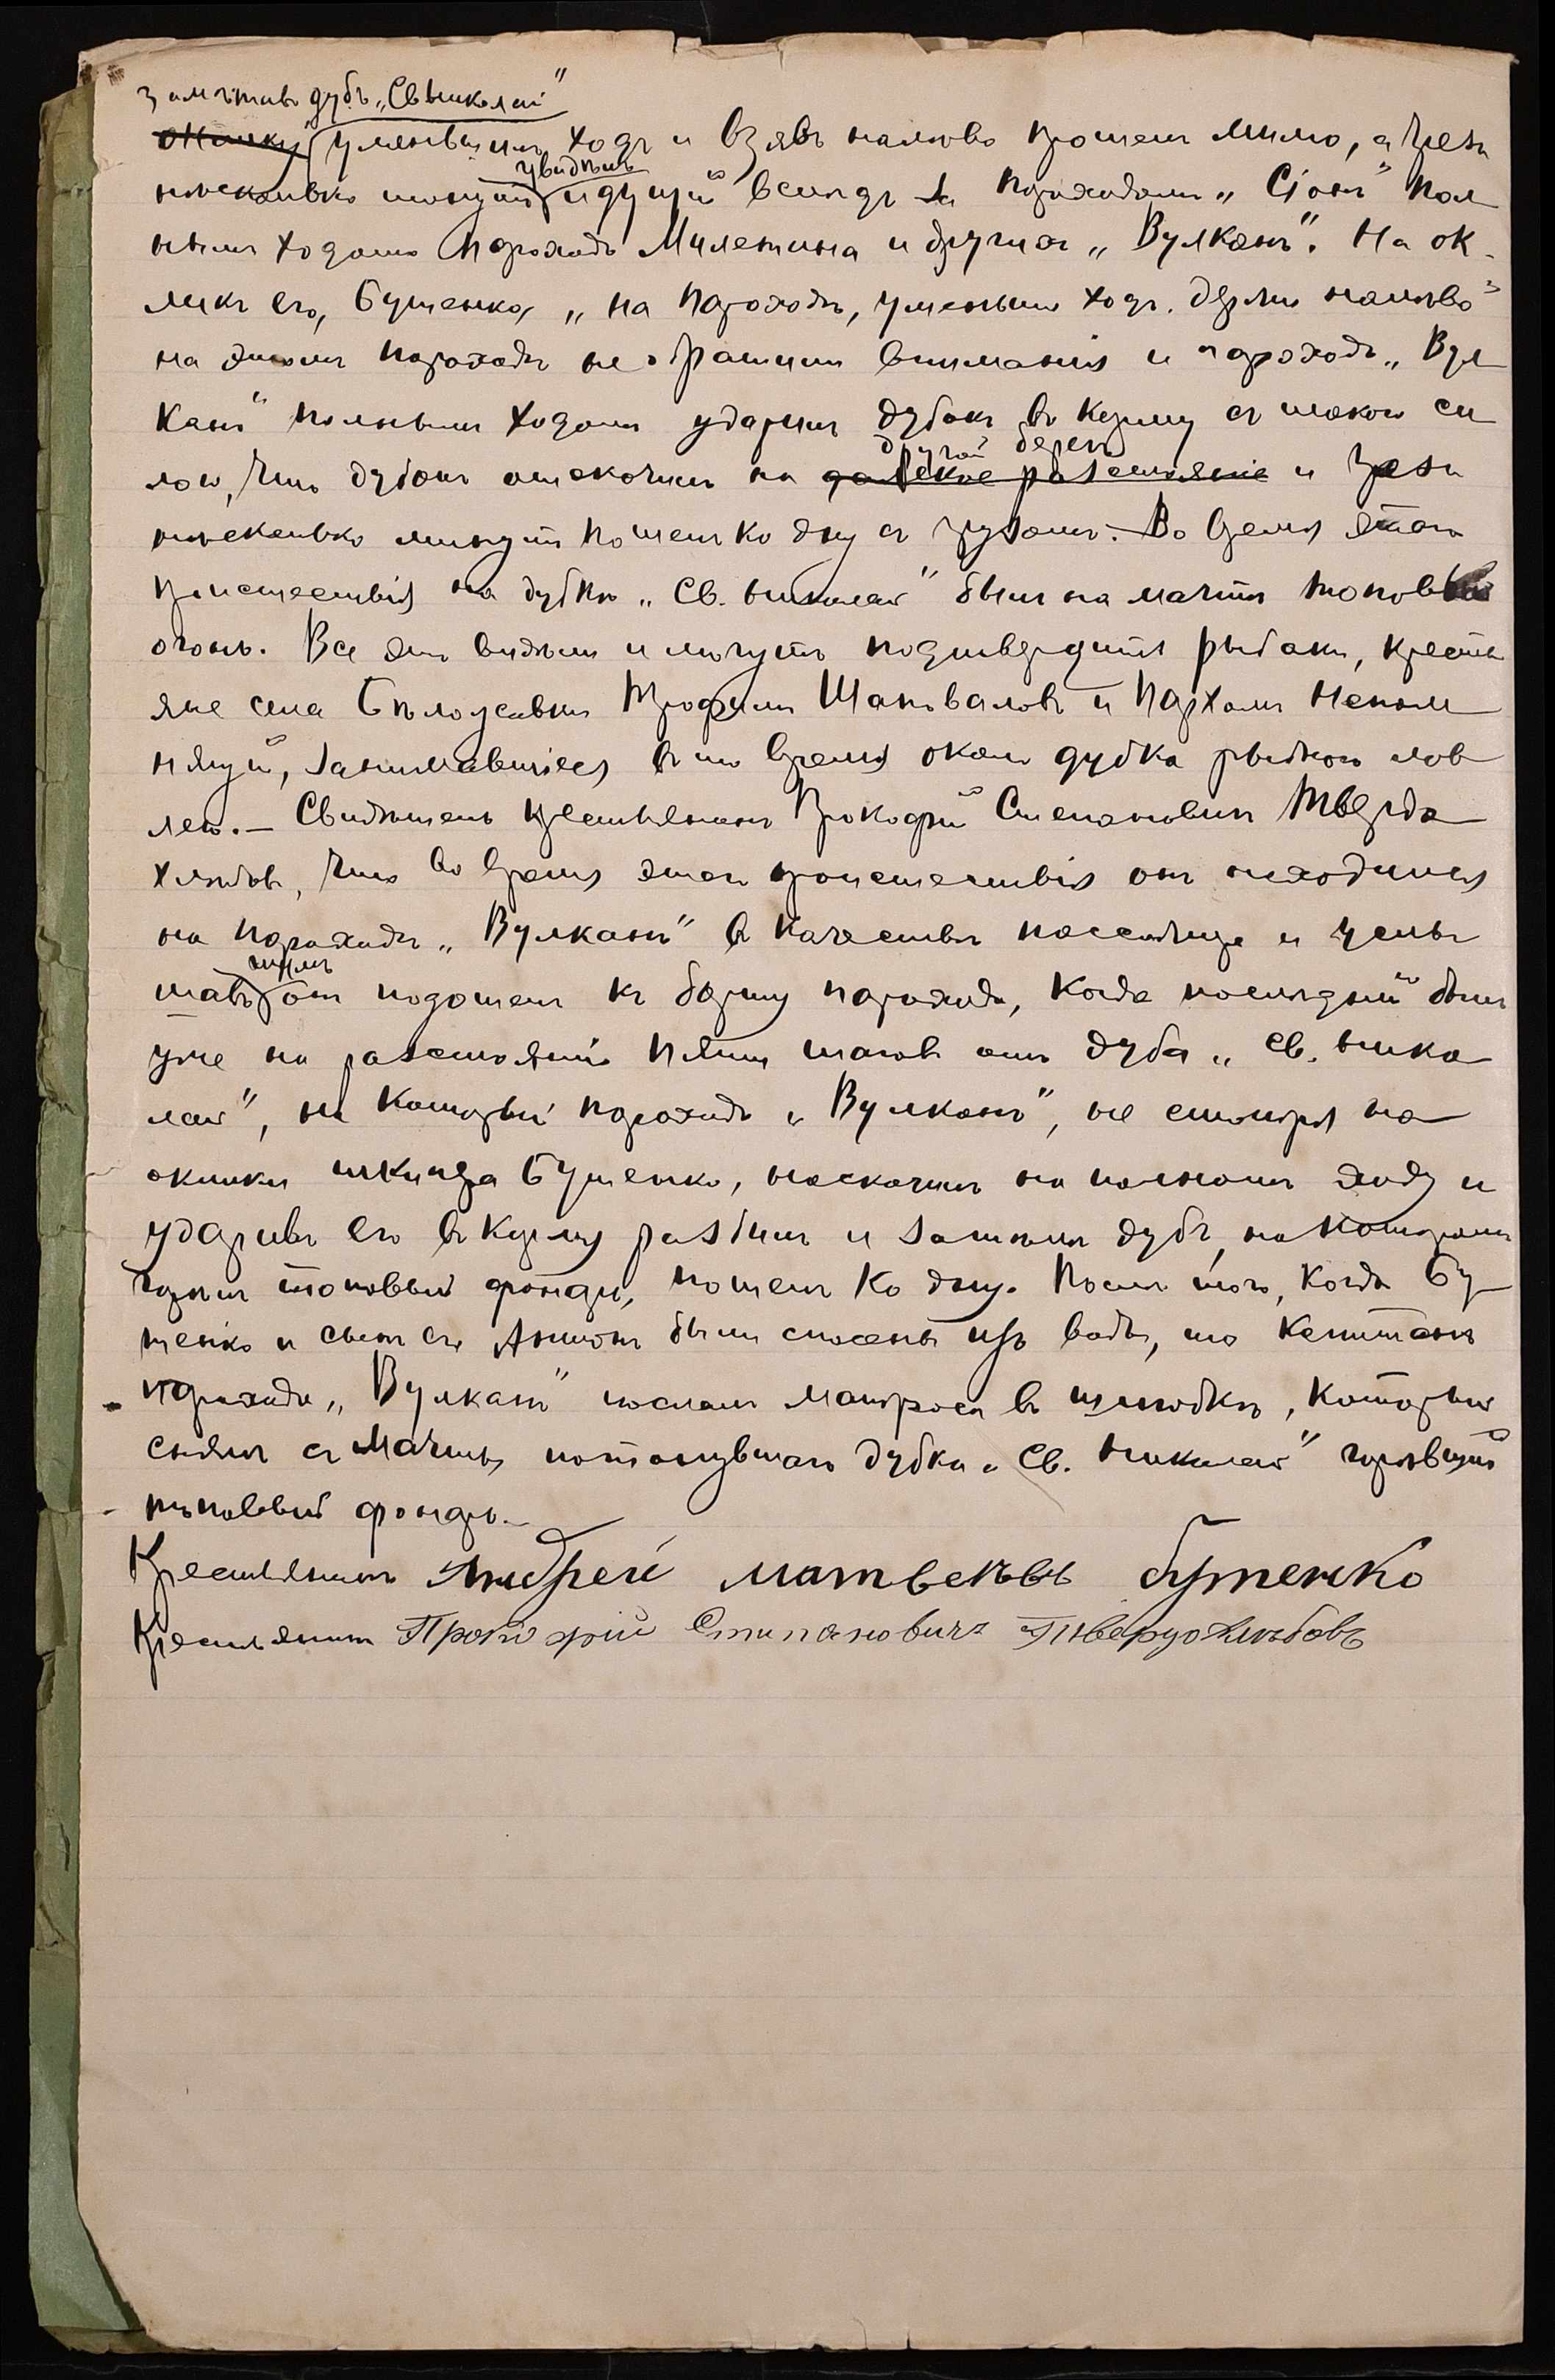 замѣтивъ дубъ „Св. Николай"
окличку уменьшилъ ходъ и взявъ налѣво прошелъ мимо, а чрезъ
нѣсколько минутъ увидѣлъ идущій вслѣдъ за пароходомъ „Сіонъ" пол
нымъ ходомъ пароходъ Милетина и другихъ „Вулканъ". На ок-
ликъ его, Бутенко, „на пароходѣ, уменьши ходъ, держи налѣво"
на этомъ пароходѣ не обратили вниманія и пароходъ „Вул
канъ" полнымъ ходомъ ударилъ дубокъ въ корму съ такою си
лою, что дубокъ отскочилъ на далекое разстояніе другой берегъ и чрезъ
нѣсколько минутъ пошелъ ко дну съ грузомъ. Во время этого
происшествія на дубкѣ „Св. Николай" былъ на мачтѣ топовый
огонь. Все это видѣли и могутъ подтвердить рыбаки, кресть
яне села Бѣлозерки Трофимъ Шаповаловъ и Пархомъ Непом
нящій, занимавшіеся въ то время около дубка рыбною лов
лею. – Свидѣтель крестьянинъ Прокофій Степановичъ Твердо
хлѣбовъ, что во время этого происшествія онъ находился
на пароходѣ „Вулканъ" въ качествѣ пассажира и услы
шавъ шумъ онъ подошелъ къ борту парохода, когда послѣдній былъ
уже на разстояніи пяти шаговъ отъ дуба „Св. Нико
лай", на который пароходъ „Вулканъ", не смотря на
оклики шкипера Бутенко, наскочилъ на полномъ ходу и
ударивъ его въ корму разбилъ и затопилъ дубъ, на которомъ
горѣлъ топовый фонарь, пошелъ ко дну. Послѣ того, когда Бу
тенко и сынъ его Антонъ были спасены изъ воды, то капитанъ
парохода „Вулканъ" послалъ матроса въ шлюбкѣ, который
снялъ съ мачты потонувшаго дубка „Св. Николай" горѣвшій
топовый фонарь. –
Крестьянинъ Андрей матвеевъ бутенко
Крестьянинъ Прокофий Стипановичъ Твердохлебовъ